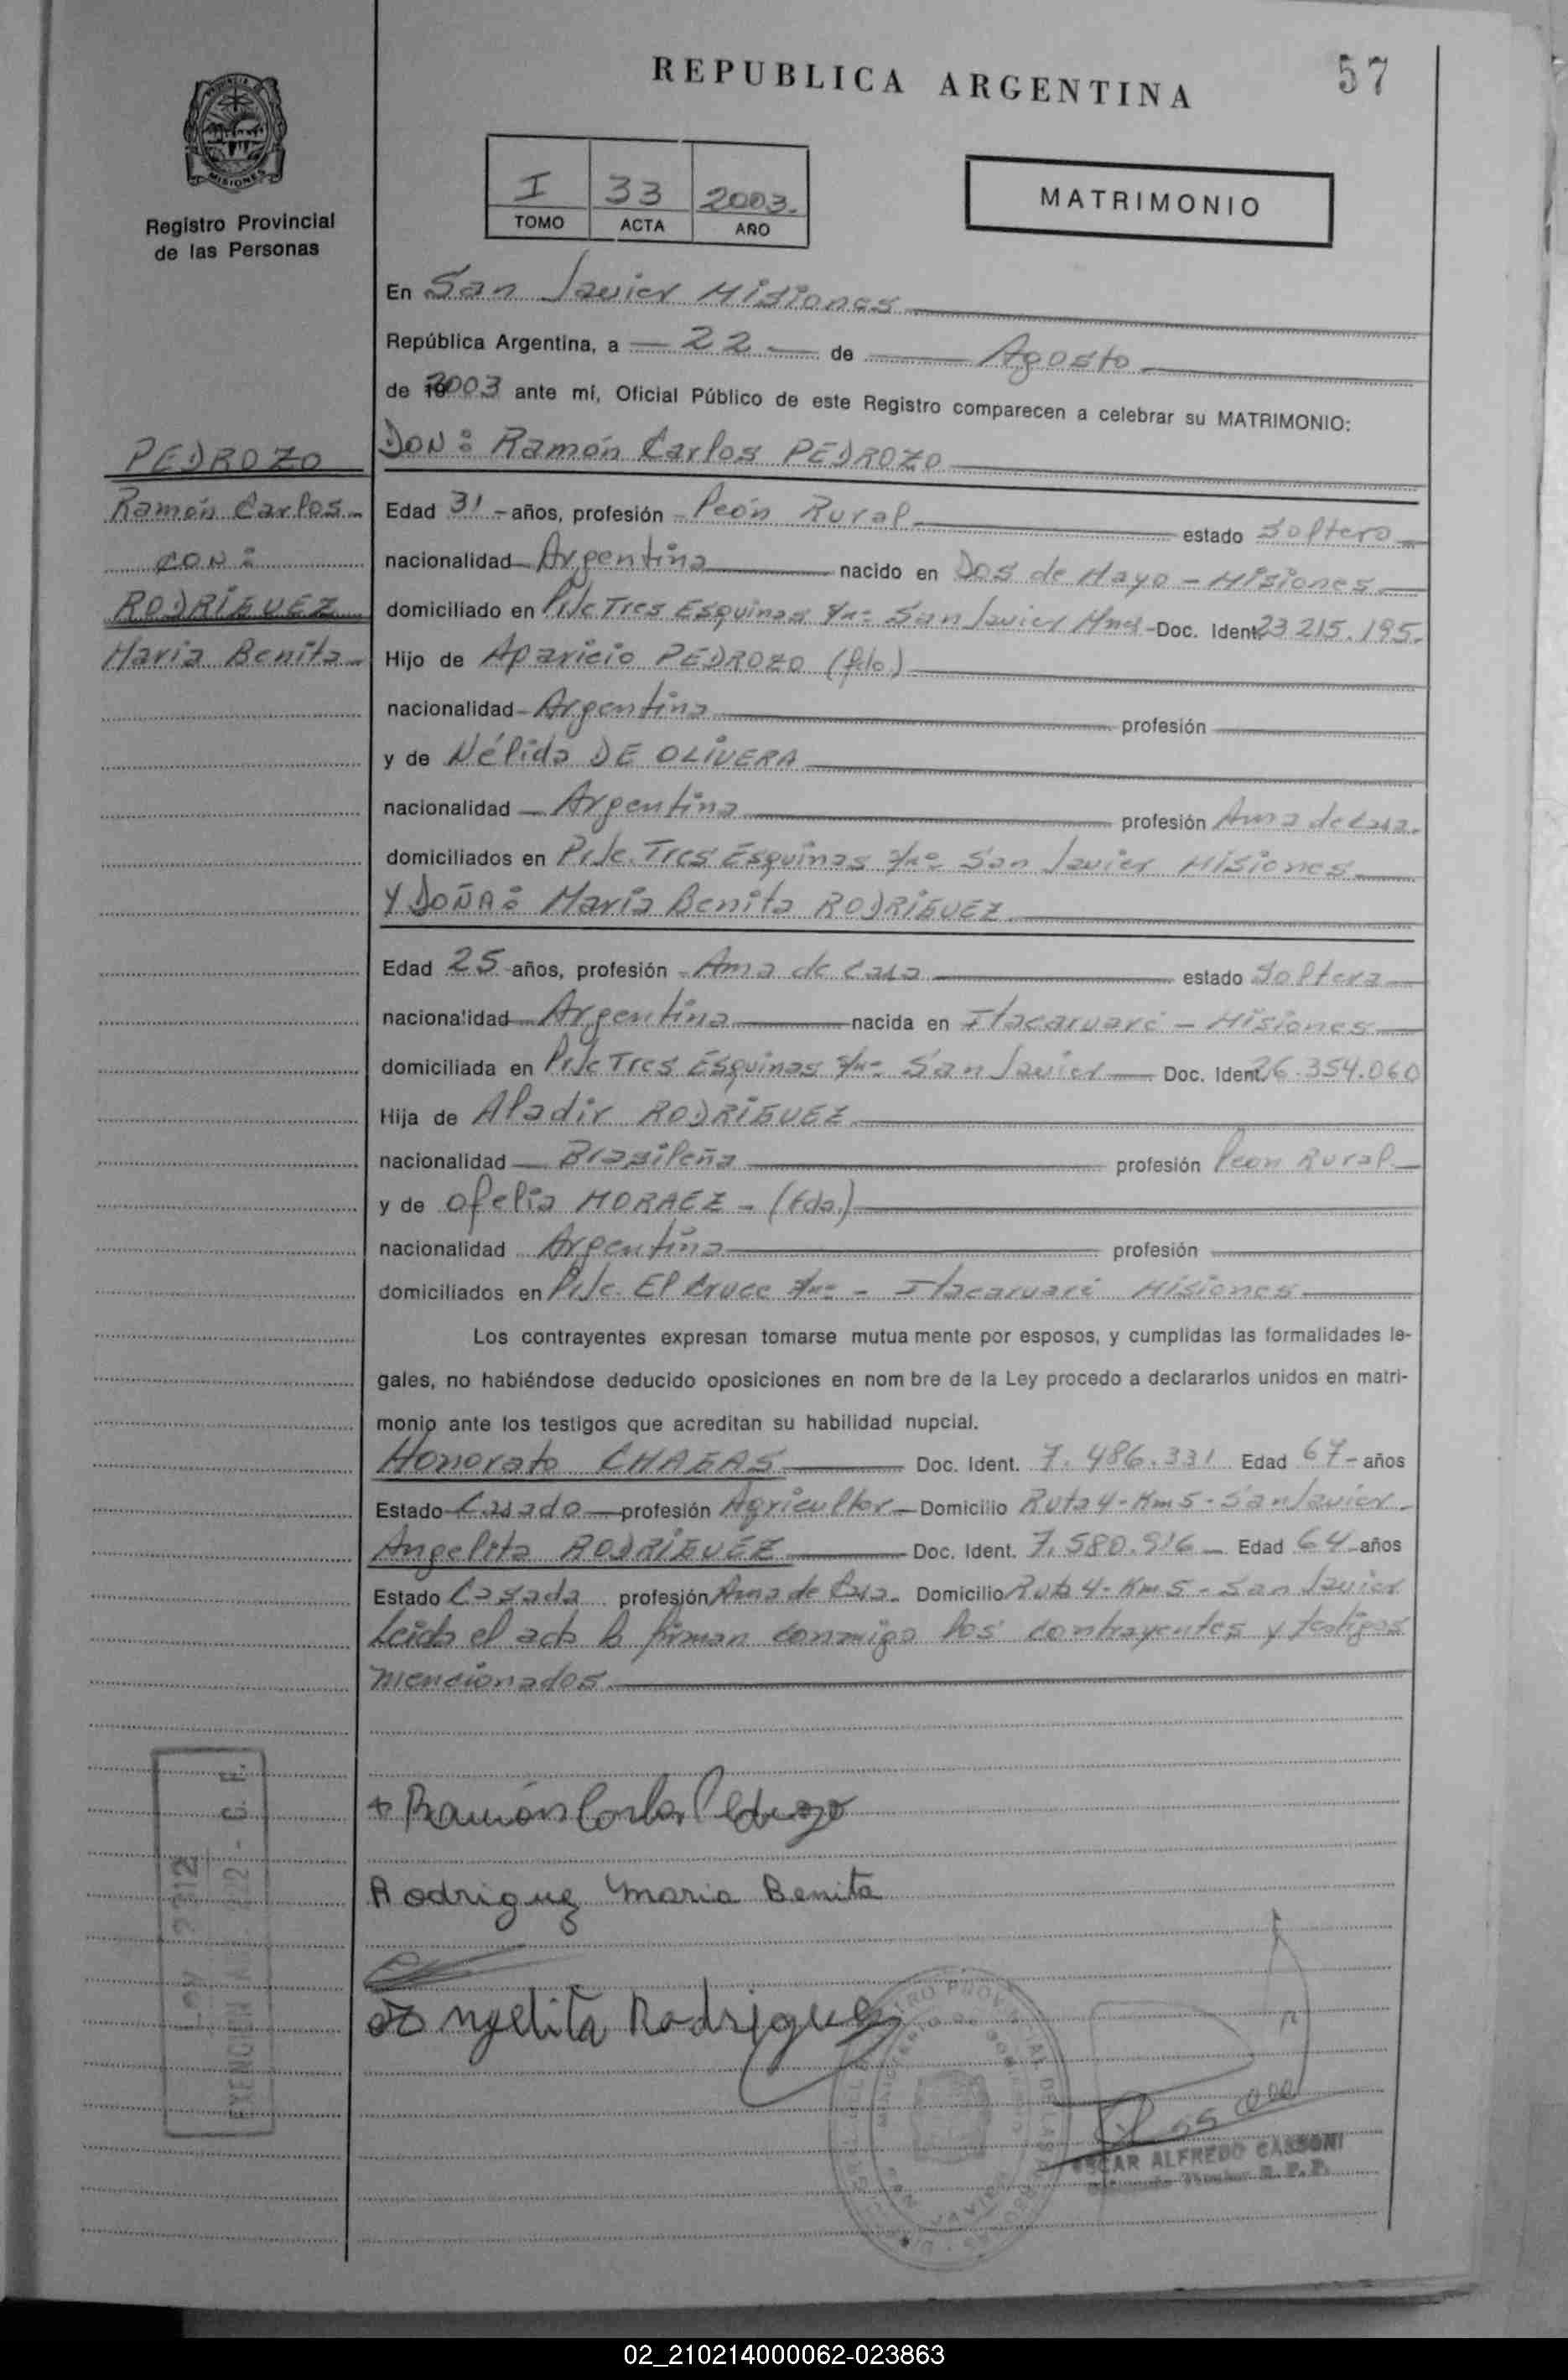 REPUBLICA ARGENTINA
57
MISIONES
Registro Provincial
de las Personas
I 33 2003.
TOMO ACTA AÑO
MATRIMONIO
En San Javier Misiones
República Argentina, a 22 de Agosto
de 2003 ante mí, Oficial Público de este Registro comparecen a celebrar su MATRIMONIO:
PEDROZO
Ramón Carlos
CON:
RODRIGUEZ
Maria Benita
DON: Ramón Carlos PEDROZO
Edad 31 años, profesión Peón Rural estado Soltero
nacionalidad Argentina nacido en Dos de Mayo - Misiones
domiciliado en Pje Tres Esquinas San Javier Mnes Doc. Ident. 23 215.195.
Hijo de Aparicio PEDROZO (fdo.)
nacionalidad Argentina profesión
y de Nélida DE OLIVERA
nacionalidad Argentina profesión Ama de Casa.
domiciliados en Pje. Tres Esquinas San Javier Misiones
Y DOÑA: María Benita RODRIGUEZ
Edad 25 años, profesión Ama de Casa estado Soltera
nacionalidad Argentina nacida en Itacaruaré - Misiones
domiciliada en Pje Tres Esquinas San Javier Doc. Ident. 26.354.060
Hija de Aladir RODRIGUEZ
nacionalidad Brasileña profesión Peon Rural
y de Ofelia MORAEZ - (fda.)
nacionalidad Argentina profesión
domiciliados en Pje. El Cruce - Itacaruaré Misiones
Los contrayentes expresan tomarse mutua mente por esposos, y cumplidas las formalidades le-
gales, no habiéndose deducido oposiciones en nom bre de la Ley procedo a declararlos unidos en matri-
monio ante los testigos que acreditan su habilidad nupcial.
Honorato CHAGAS Doc. Ident. 7.486.331 Edad 67 años
Estado Casado profesión Agricultor Domicilio Ruta 4 - Km 5 - San Javier
Angelita RODRIGUEZ Doc. Ident. 7.580.916 Edad 64 años
Estado Casada profesión Ama de Casa. Domicilio Ruta 4 - Km 5 - San Javier
Leida el acta la firman conmigo los contrayentes y testigos
mencionados
+ Ramón Carlos Pedrozo
Rodriguez Maria Benita
Angelita Rodriguez
OSCAR ALFREDO CASSONI
02_210214000062-023863